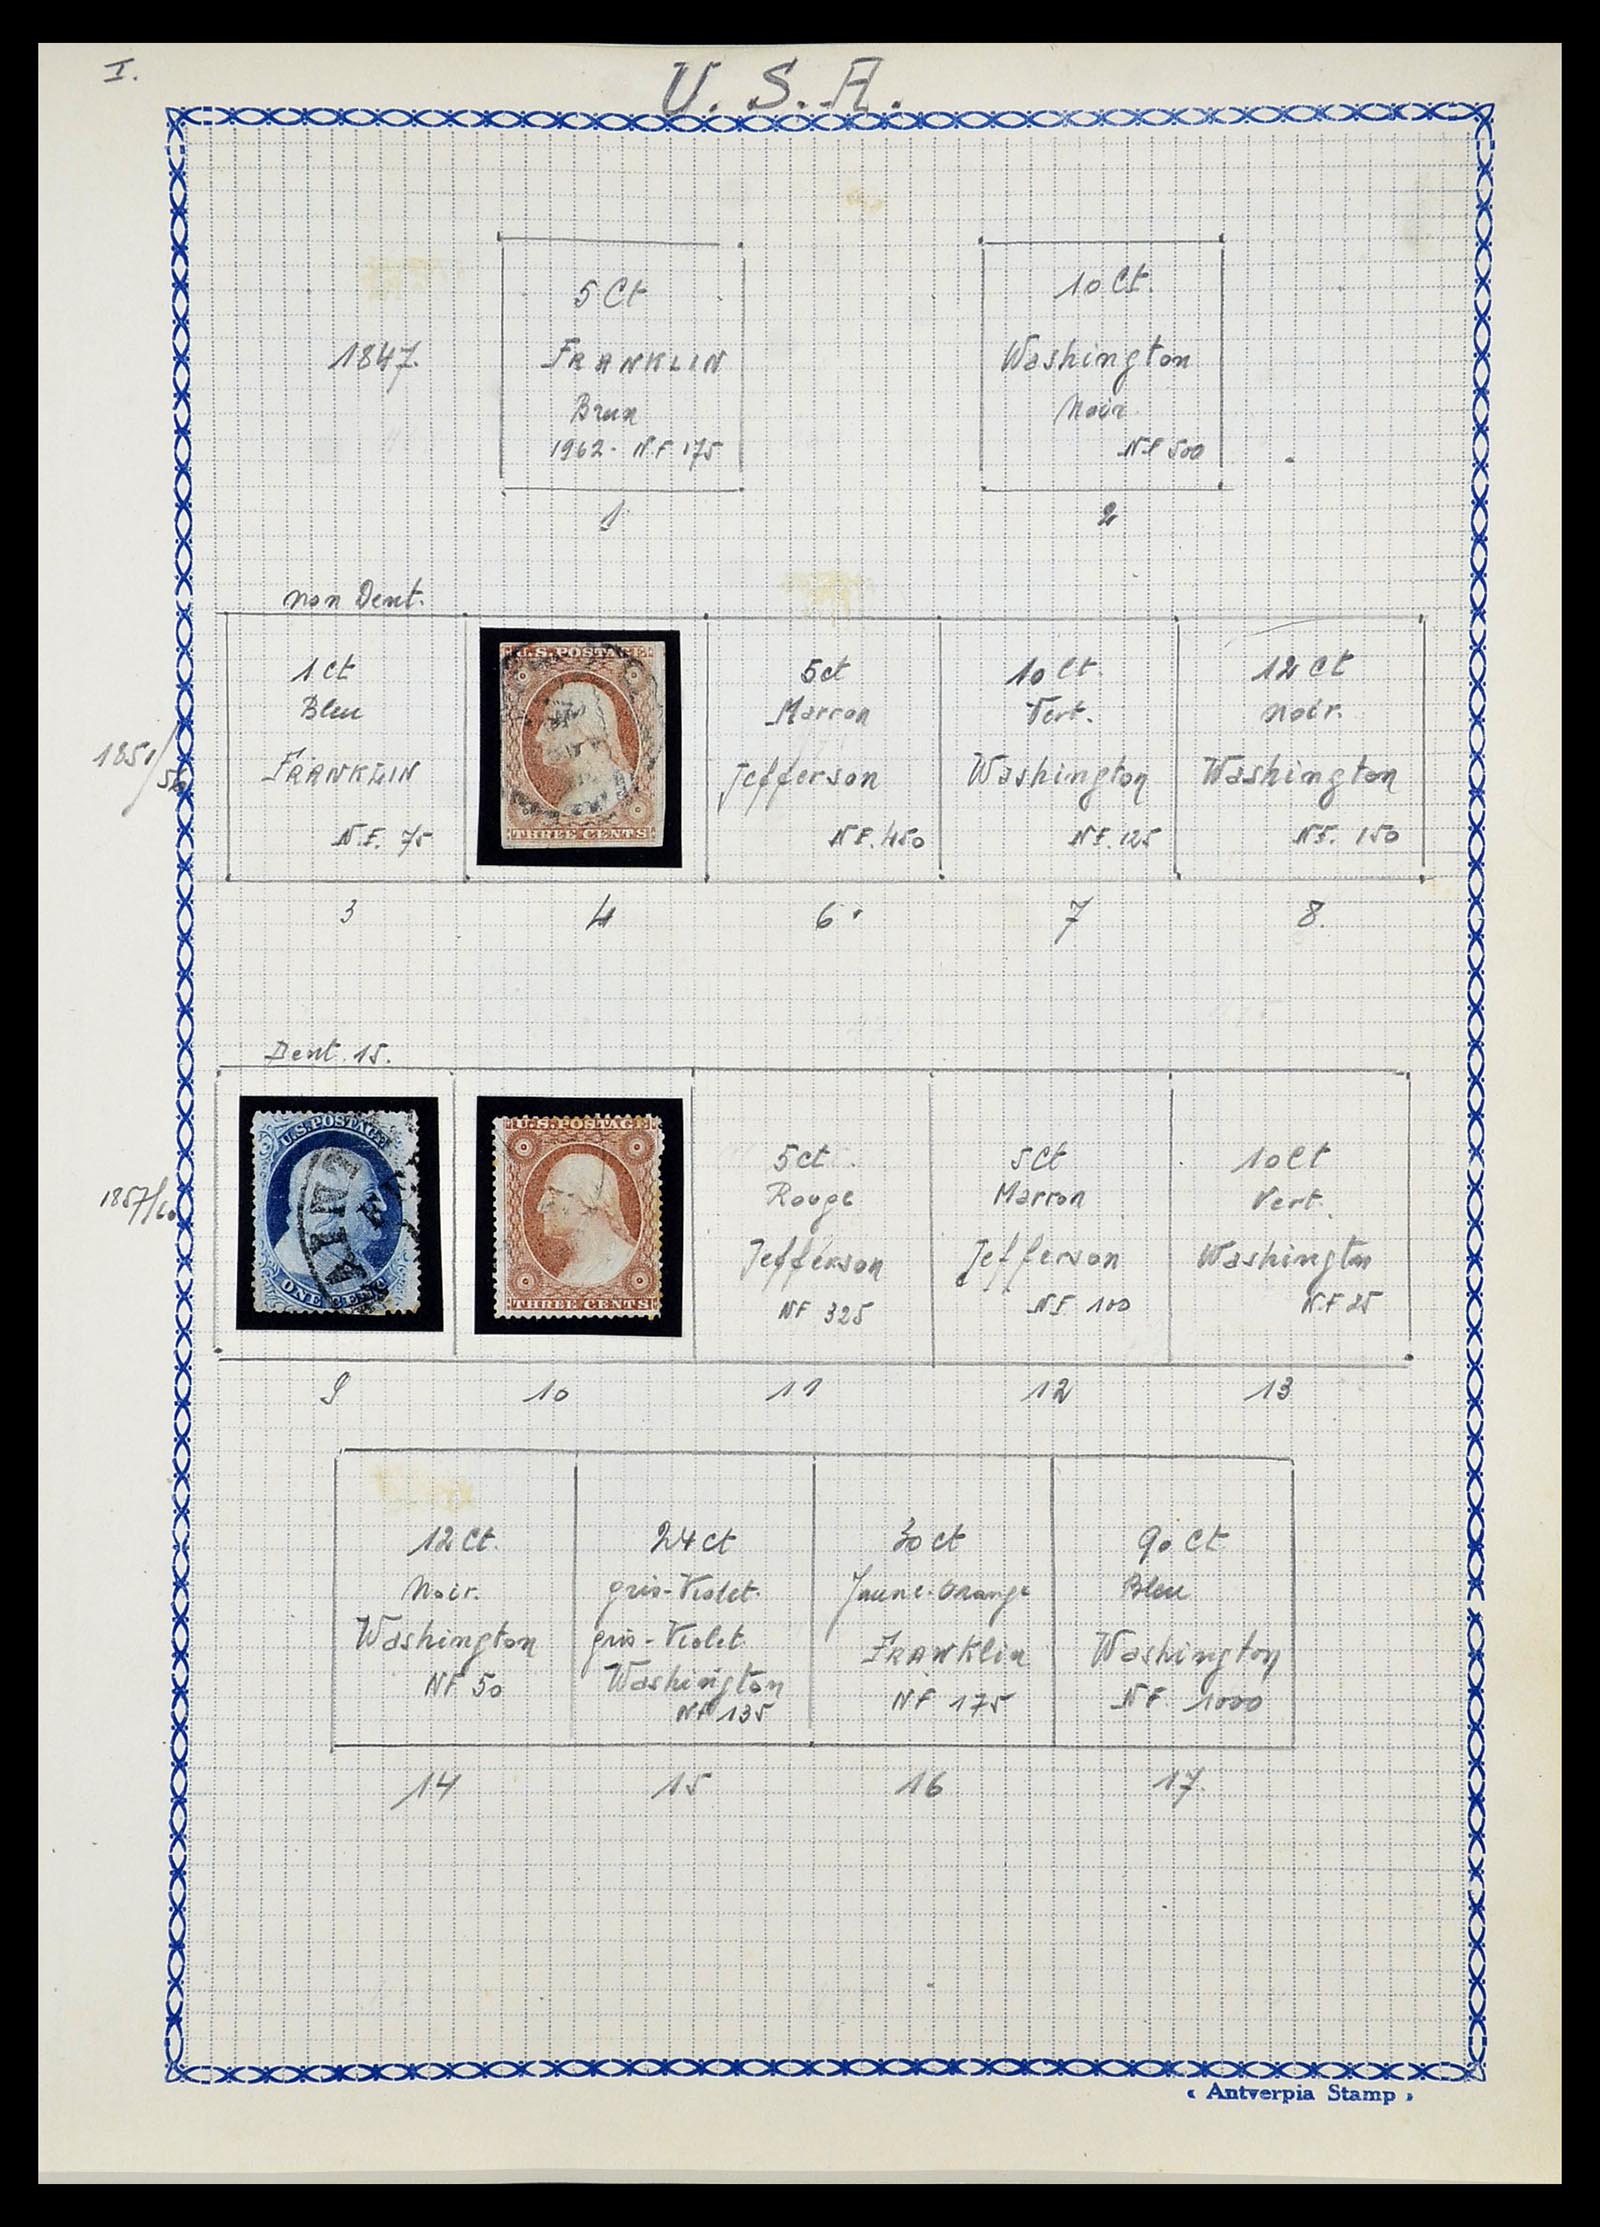 I.
U. S. A.
1847.
5 Ct
FRANKLIN
Brun
1962 - N.F 175
1
10 Ct.
Washington
Noir.
N.F 500
2
non Dent.
1851/
1 Ct
Bleu
FRANKLIN
N.F. 75
3
U.S. POSTAGE
THREE CENTS
4
5ct
Marron
Jefferson
N F. 450
6
10 Ct.
Vert.
Washington
N F. 125
7
12 Ct
noir.
Washington
N F. 150
8.
Dent. 15.
1857/60
U.S. POSTAGE
ONE CENT
9
U.S. POSTAGE
THREE CENTS
10
5ct
Rouge
Jefferson
NF 325
11
5Ct
Marron
Jefferson
N F. 100
12
10 Ct
Vert.
Washington
N.F 25
13
12 Ct.
Noir.
Washington
NF 50
14
24 ct
gris-Violet.
gris-Violet
Washington
NF 135
15
30 ct
Jaune-Orange
FRANKlin
NF 175
16
90 Ct
Bleu
Washington
NF 1000
17.
« Antverpia Stamp »